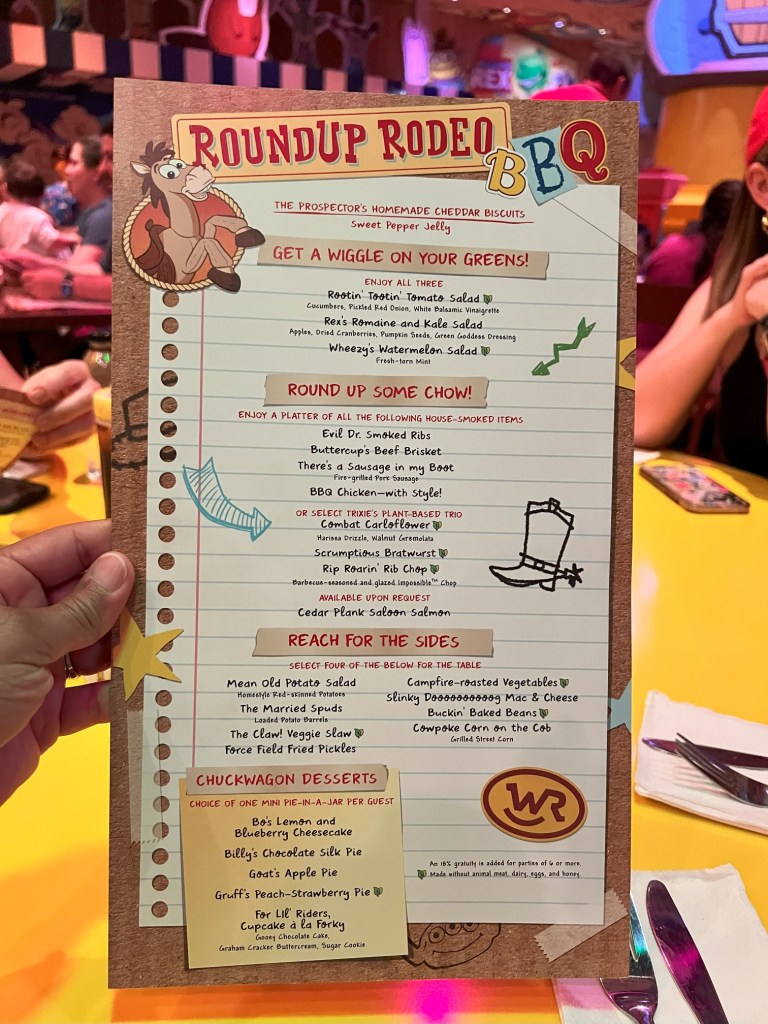 ROUNDUP RODEO
BBQ
THE PROSPECTOR'S HOMEMADE CHEDDAR BISCUITS
Sweet Pepper Jelly
GET A WIGGLE ON YOUR GREENS!
ENJOY ALL THREE
Rootin' Tootin' Tomato Salad
Cucumbers, Pickled Red Onion, White Balsamic Vinaigrette
Rex's Romaine and Kale Salad
Apples, Dried Cranberries, Pumpkin Seeds, Green Goddess Dressing
Wheezy's Watermelon Salad
Fresh-torn Mint
ROUND UP SOME CHOW!
ENJOY A PLATTER OF ALL THE FOLLOWING HOUSE-SMOKED ITEMS
Evil Dr. Smoked Ribs
Buttercup's Beef Brisket
There's a Sausage in my Boot
Fire-grilled Pork Sausage
BBQ Chicken—with Style!
OR SELECT TRIXIE'S PLANT-BASED TRIO
Combat Carloflower
Harissa Drizzle, Walnut Gremolata
Scrumptious Bratwurst
Rip Roarin' Rib Chop
Barbecue-seasoned and glazed Impossible™ Chop
AVAILABLE UPON REQUEST
Cedar Plank Saloon Salmon
REACH FOR THE SIDES
SELECT FOUR OF THE BELOW FOR THE TABLE
Mean Old Potato Salad
Homestyle Red-skinned Potatoes
The Married Spuds
Loaded Potato Barrels
The Claw! Veggie Slaw
Force Field Fried Pickles
Campfire-roasted Vegetables
Slinky Doooooooooog Mac & Cheese
Buckin' Baked Beans
Cowpoke Corn on the Cob
Grilled Street Corn
CHUCKWAGON DESSERTS
CHOICE OF ONE MINI PIE-IN-A-JAR PER GUEST
Bo's Lemon and
Blueberry Cheesecake
Billy's Chocolate Silk Pie
Goat's Apple Pie
Gruff's Peach-Strawberry Pie
For Lil' Riders,
Cupcake à la Forky
Gooey Chocolate Cake,
Graham Cracker Buttercream, Sugar Cookie
WR
An 18% gratuity is added for parties of 6 or more.
Made without animal meat, dairy, eggs, and honey.